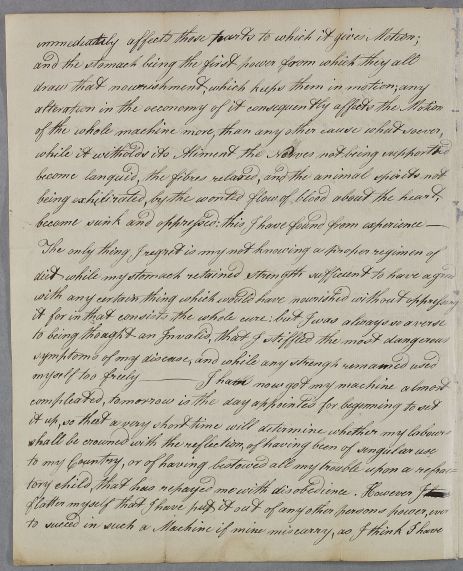 immediately affects those parts to which it gives Motion;
and the stomach being the first power from which they all
draw that nourishment, which keeps them in motion; any
alteration in the oeconomy of it consequently affects the Motion
of the whole machine more, than any other cause what soever,
while it witholds its Aliment the Nerves not being supported
become languid, the fibres relaxed, and the animal spirits not
being exhilirated, by the wonted flow of blood about the heart,
become sunk and oppressed: this I have found from experience —
The only thing I regret is my not knowing a proper regimen of
diet while my stomach retained strength sufficient to have agreed
with any certain thing which would have nourished without oppressing
it for in that consists the whole cure: but I was always so averse
to being thought an Invalid, that I stiffled the most dangerous
symptoms of my disease, and while any strengh remained used
myself too freely — I have now got my machine almost
compleated, tomorrow is the day appointed for beginning to set
it up, so that a very short time will determine whether my labours
shall be crowned with the reflection, of having been of singular use
to my Country, or of having bestowed all my trouble upon a
tory child, that has repayed me with disobedience. However I
flatter myself that I have put it out of any other persons power, ever
to succed in such a Machine if mine miscarry, as I think I have